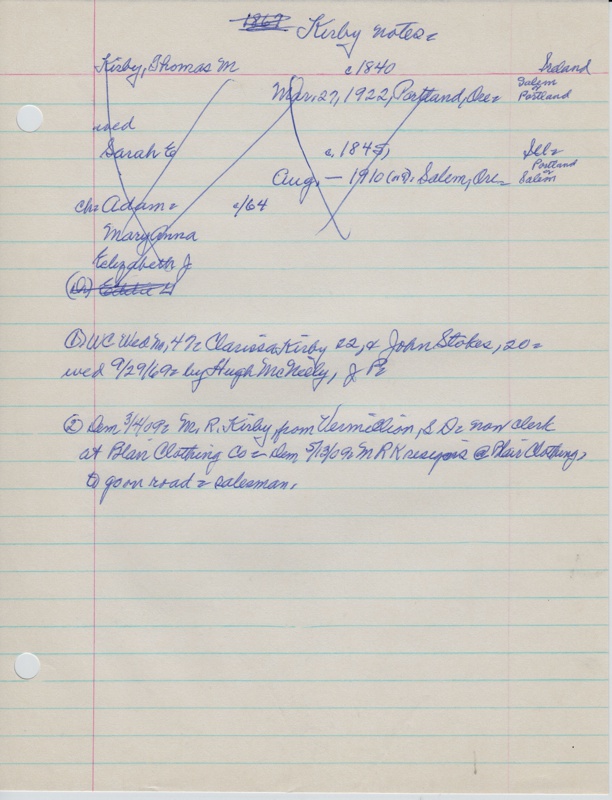 1867 Kirby notes=
Kirby, Thomas M c1840 Ireland
Mar. 27, 1922, Portland, Ore= Salem Portland
wed
Sarah E c. 1845, Ill=
Portland
Aug. — 1910 (n?). Salem, Ore= Salem
ch= Adam= c/64
Mary Anna
Elizabeth J
(Dr) Eddie L
(1) WC Wed M, 47= Clarissa Kirby 22, & John Stokes, 20=
wed 9/29/69= by Hugh McNeely, J P=
(2) Dem 3/4/09= M. R. Kirby, from Vermillion, S D= now clerk
at Blair Clothing Co= Dem 5/13/09= M R K resigns @ Blair Clothing,
to go on road= salesman.